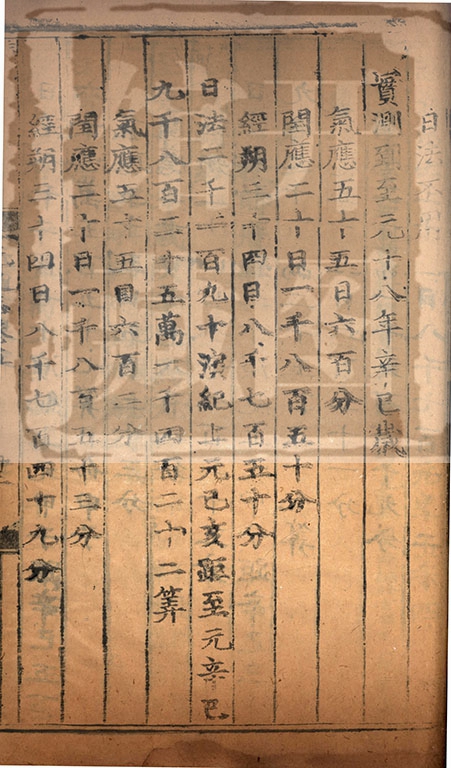 日法不用
實測到至元十八年辛巳歲
氣應五十五日六百分
閏應二十日一千八百五十分
經朔三十四日八千七百五十分
日法二千一百九十演紀上元己亥距至元辛巳
九千八百二十五萬一千四百二十二筭
氣應五十五日六百二分
閏應二十日一千八百五十三分
經朔三十四日八千七百四十九分